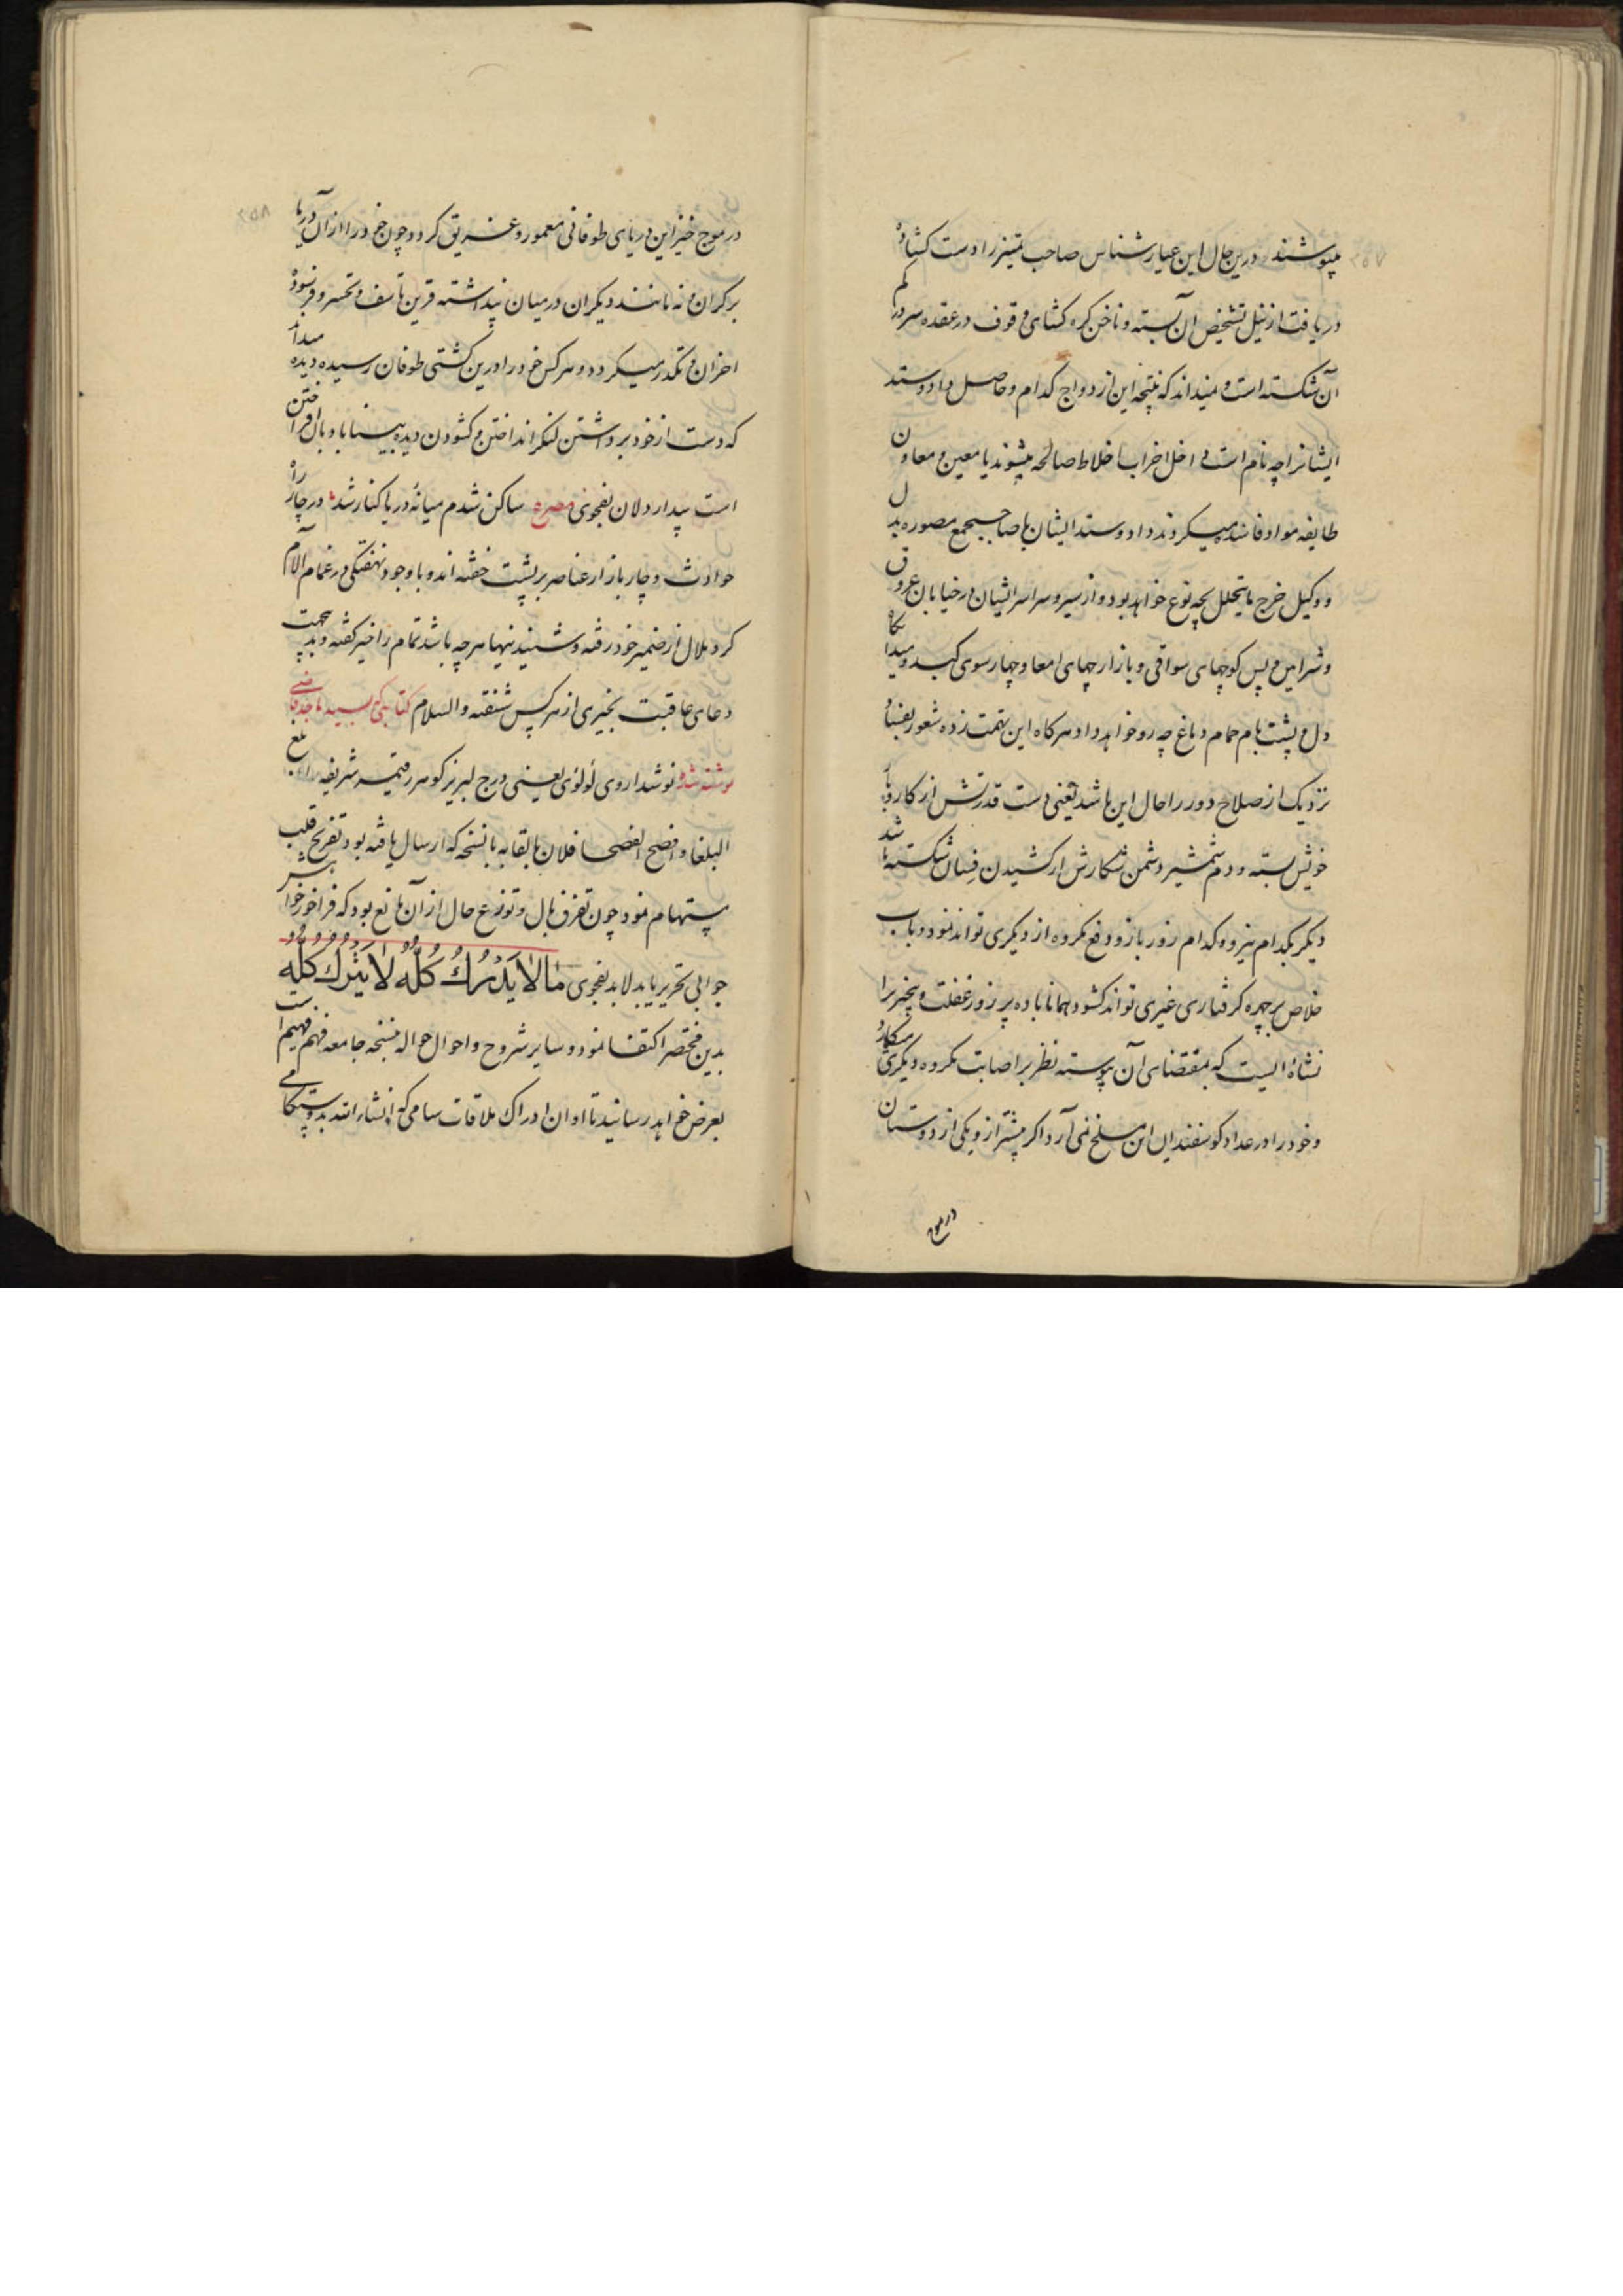 میپوشند درین حال این عیار شناس صاحب تمیز را دست کشاده
دریافت از نیل تشخیص آن بسته و ناخن کره کشای وقوف در عقده سر در کم
آن شکسته است و نمیداند که نتیجه این ازدواج کدام و حاصل داد و ستد
ایشانرا چه نام است داخل اخراب اخلاط صالحه میشوند یا معین و معاون
طایفه مواد فاسده میکردند داد و ستد ایشان با صاحب جمع مصوره بدل
و وکیل خرج ما یتحلل بچه نوع خواهد بود و از سیر و سراسر ایشان در خیابان عروق
و شرایین و پس کوچهای سواقی و بازارچهای امعا و چهار سوی کبد و میدانگاه
دل و پشت بام حمام دماغ چه رو خواهد داد و هرکاه این تهمت زده شعور بفساد
نزدیک از صلاح دور را حال این باشد یعنی دست قدرتش از کار و بار
خویش بسته و دم شمشیر دشمن شکارش از کشیدن فسان شکسته باشد
دیکر بکدام نیرو و کدام زور بازو دفع مکروه از دیکری تواند نمود و باب
خلاص بر چهره کرفتاری غیری تواند کشود همانا باده پر زور غفلت و بیخبری را
نشاهٔ ایست که بمقتضای آن پیوسته نظر بر اصابت مکروه دیکری میکارد
و خود را در عداد کوسفندان این مسلخ نمی آرد اکر پیشتر از و یکی از دوستان
در موج
در موج خیز این دریای طوفانی مغمور و غریق کردد چون خود را از آن دریا
بر کران و نه مانند دیکران در میان پنداشته قرین تاسف و تحسر و فرسوده
احزان و تکدر میکردد و هرکس خود را درین کشتی طوفان رسیده دیده میداند
که دست از خود برداشتن لنکر انداختن و کشودن دیده بینا بادبان افراختن
است بیدار دلان بفحوی مصرع ساکن شدم میانهٔ دریا کنار شد در چار راه
حوادث و چار بازار عناصر بر پشت خفته اند و با وجود نهفتکی در غمام آلام
کرد ملال از ضمیر خود رفته و شنیدنیها هرچه باشد تمام را خیر کفته و بد بجهت
دعای عاقبت بخیری از هرکس شنفته والسلام کتابتی که بسید ماجد قاضی
نوشته شد نوشداروی لؤلؤی یعنی درج لبریز کوهر رقیمه شریفه بلغ
البلغا و افصح الفصحا فلان با نسخه که ارسال یافته بود تفریح قلب
مستهام نمود چون تفرق بال و توزع حال از آن مانع بود که فراخور خواهش
جوابی تحریر یابد لابد بفحوی مَا لا یُدْرَكُ كُلُّهُ لا یُتْرَكُ كُلُّهُ
بدین مختصر اکتفا نمود و سایر شروح و احوال حواله بنسخه جامعه فهم فهیم است
بعرض خواهد رسانید تا اوان ادراك ملاقات سامی که انشاء الله بدوستکامی